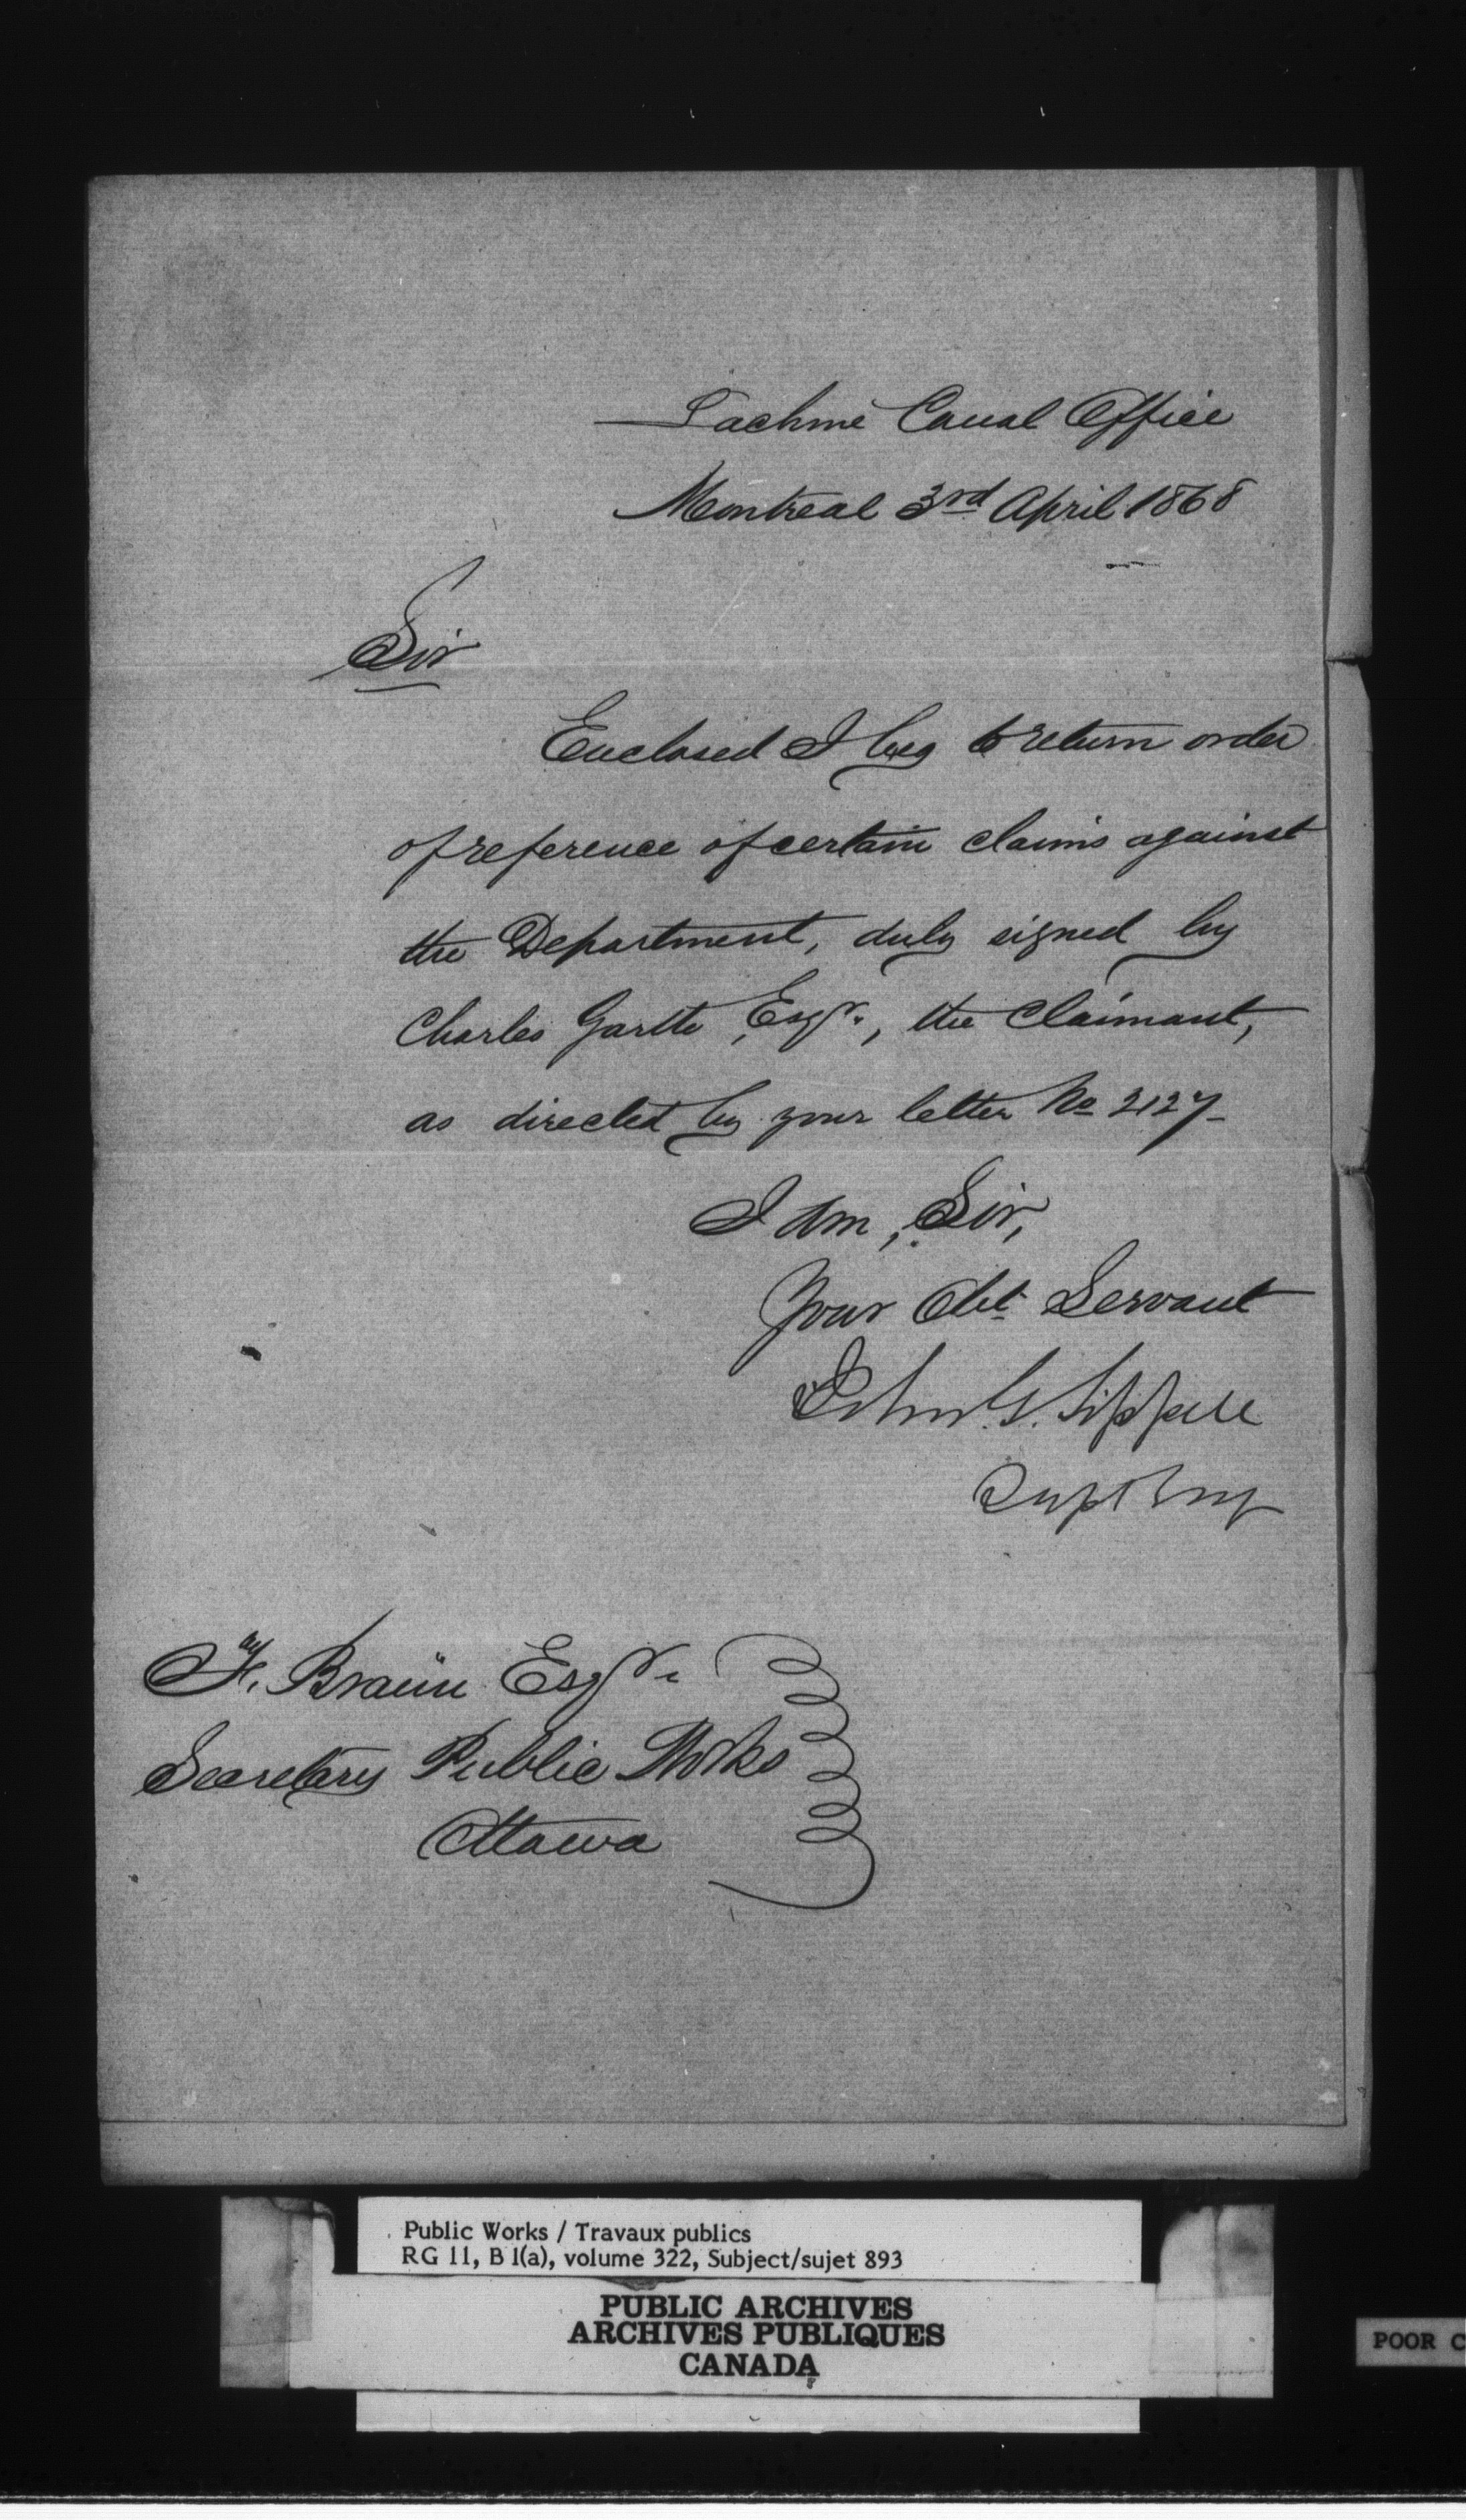 Lachine Canal Office
Montreal 3rd April 1868
Sir
Enclosed I beg to return order
of reference of certain claims against
the Department, duly signed by
Charles Garth, Esqr., the Claimant,
as directed by your letter No 2127
I am, Sir,
Your Obt Servant
John G. Sippell
Supt Eng
F. Braün Esqr.
Secretary Public Works
Ottawa
Public Works / Travaux publics
RG 11, B 1(a), volume 322, Subject/sujet 893
PUBLIC ARCHIVES
ARCHIVES PUBLIQUES
CANADA
POOR C